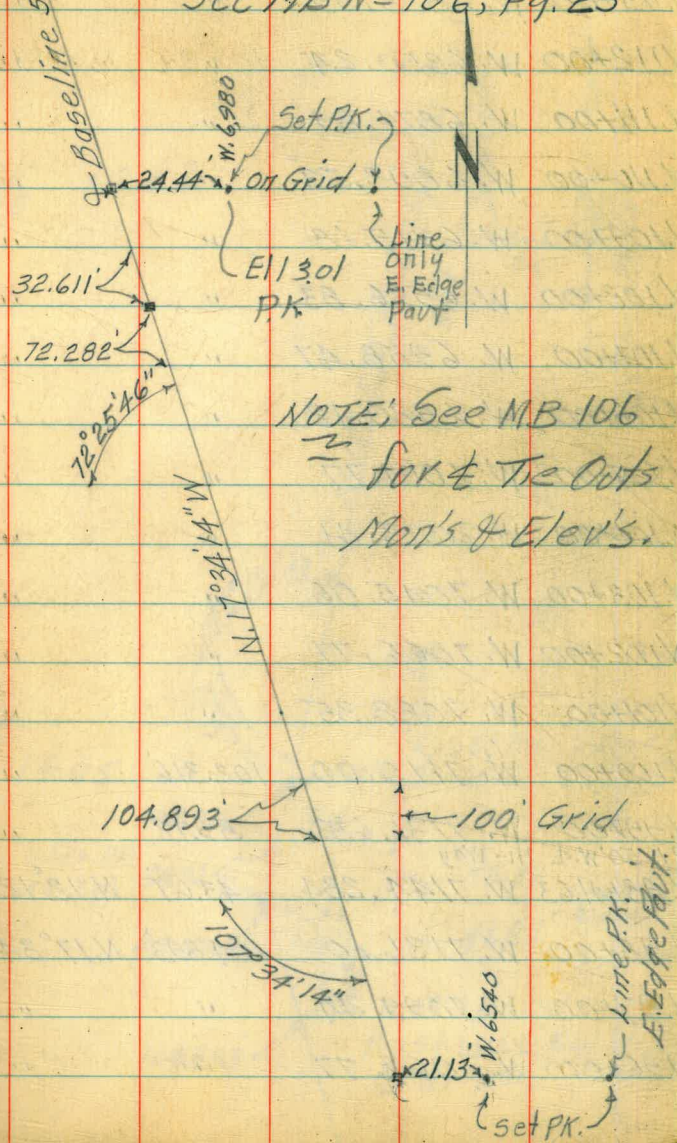 See MB No 106, Pg. 25
℄ Baseline 5
W. 6,980
Set P.K.
N
24.44'
on Grid
Line
only
E. Edge
Pavt
El 13.01
P.K
32.611'
72.282'
72°25'46"
NOTE; See MB 106
for ℄ Tie Outs
Mon's & Elev's.
N. 17°34'14" W
104.893'
100' Grid
107°34'14"
21.13'
W. 6540
Line P.K.
E. Edge Pavt.
Set P.K.